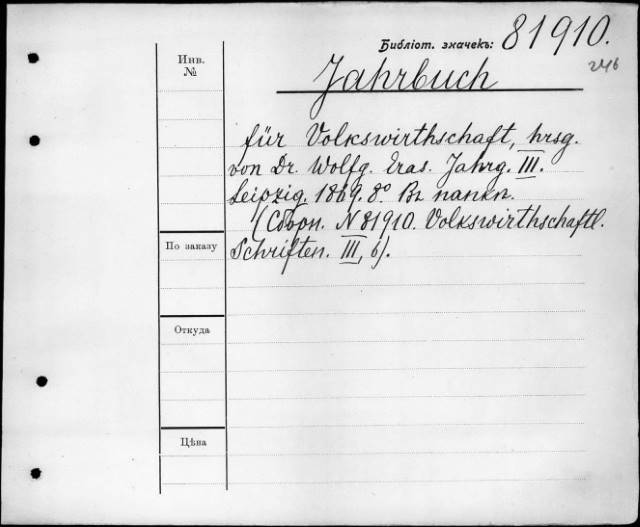 Библіот. значекъ: 81910.
246
Инв.
№
Jahrbuch
für Volkswirthschaft, hrsg.
von Dr. Wolfg. Eras. Jahrg. III.
Leipzig. 1869. 8° Въ папкѣ.
(Сборн. N 81910. Volkswirthschaftl.
Schriften. III, 6).
По заказу
Откуда
Цѣна